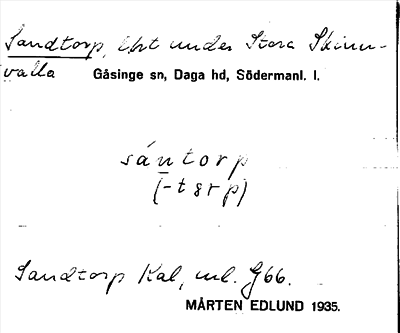 Sandtorp, lht under Stora Skinn-
valla Gåsinge sn, Daga hd, Södermanl. l.
sántorp
(-torp)
Sandtorp Kal, ul. J66.
MÅRTEN EDLUND 1935.